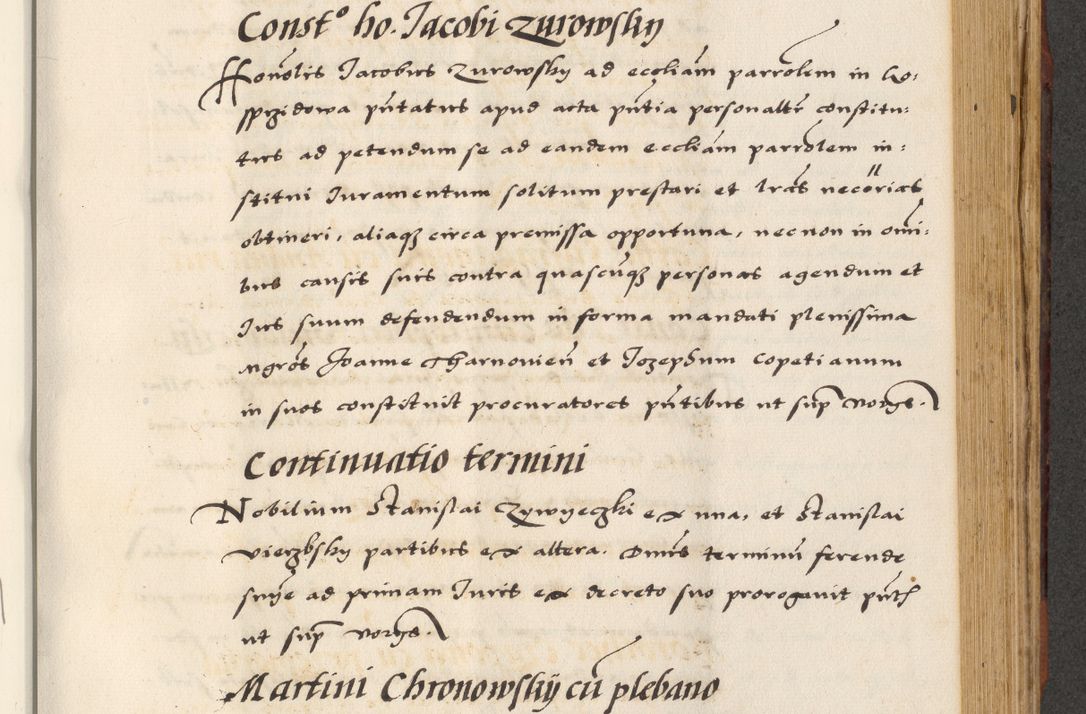 Constº ho. Jacobi Zurowsky
Honolis Jacobus Zurowsky ad eccliam parrolem in Go:
sprzidowa pntatus apud acta pntia personaltr constitu:
tus ad petendum se ad eandem eccliam parrolem in:
stitui Juramentum solitum prestari et lras necorias
obtineri, aliaq circa premissa opportuna, necnon in omi:
bus causis suis contra quascuq personas agendum et
Jus suum defendendum in forma mandati plenissima
Mgros Joanne Tharnovien et Jozephum Copetianum
in suos constituit procuratores pntibus ut sup
Continuatio termini
Nobilium Stanislai Zywyeczki ex una, et Stanislai
vierzbsky partibus ex altera. Dnus terminu ferende
snie ad primam Juris ex decreto suo prorogavit pnti
ut sup
Martini Chronowskij cu plebano